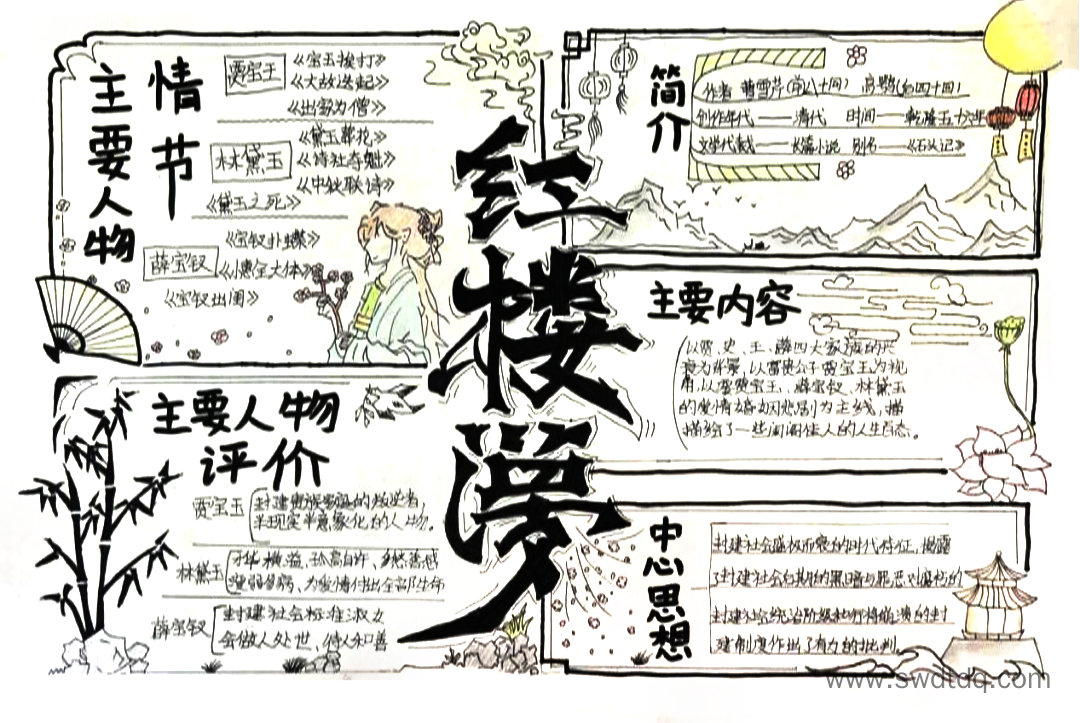 红楼梦
主要人物
情节
贾宝玉
《宝玉挨打》
《大故迭起》
《出家为僧》
林黛玉
《黛玉葬花》
《诗社夺魁》
《中秋联诗》
《黛玉之死》
薛宝钗
《宝钗扑蝶》
《小惠全大体》
《宝钗出闺》
主要人物
评价
贾宝玉
封建贵族家庭的叛逆者,
半现实半意象化的人物。
林黛玉
才华横溢、孤高自许、多愁善感
孱弱多病、为爱情付出全部生命
薛宝钗
封建社会标准淑女
会做人处世、待人和善
简介
作者 曹雪芹(前八十回) 高鹗(后四十回)
创作年代——清代 时间——乾隆五十六年
文学代表——长篇小说 别名——《石头记》
主要内容
以贾、史、王、薛四大家族的兴
衰为背景,以富贵公子贾宝玉为视
角,以贾宝玉、薛宝钗、林黛玉
的爱情婚姻悲剧为主线,描
描绘了一些闺阁佳人的人生百态。
中心思想
封建社会盛极而衰的时代特征,揭露
了封建社会后期的黑暗与罪恶对腐朽的
封建社会统治阶级和即将崩溃的封
建制度作出了有力的批判。
www.swdtdq.com